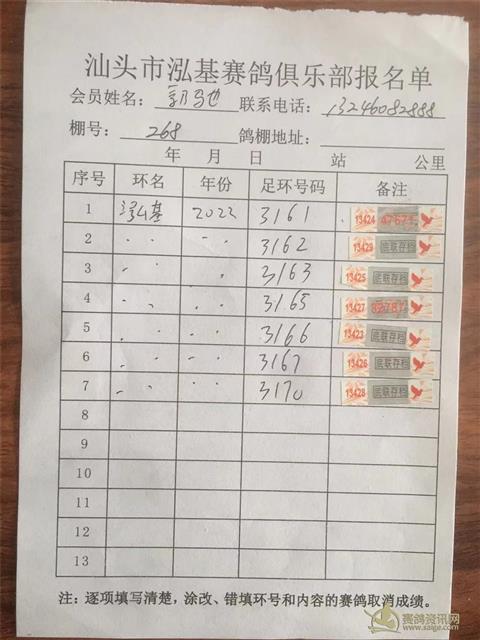 汕头市泓基赛鸽俱乐部报名单
会员姓名： 联系电话：13246082888
棚号：268 鸽棚地址：
年 月 日 站 公里
序号 环名 年份 足环号码 备注
1 泓基 2022 3161 13424 47671
2 〃 〃 3162 13429 底联存档
3 〃 〃 3163 13425 底联存档
4 〃 〃 3165 13427
5 〃 〃 3166 13423 底联存档
6 〃 〃 3167 13426 底联存档
7 〃 〃 3170 13428 底联存档
8
9
10
11
12
13
注：逐项填写清楚，涂改、错填环号和内容的赛鸽取消成绩。
赛鸽资讯网
www.saige.com